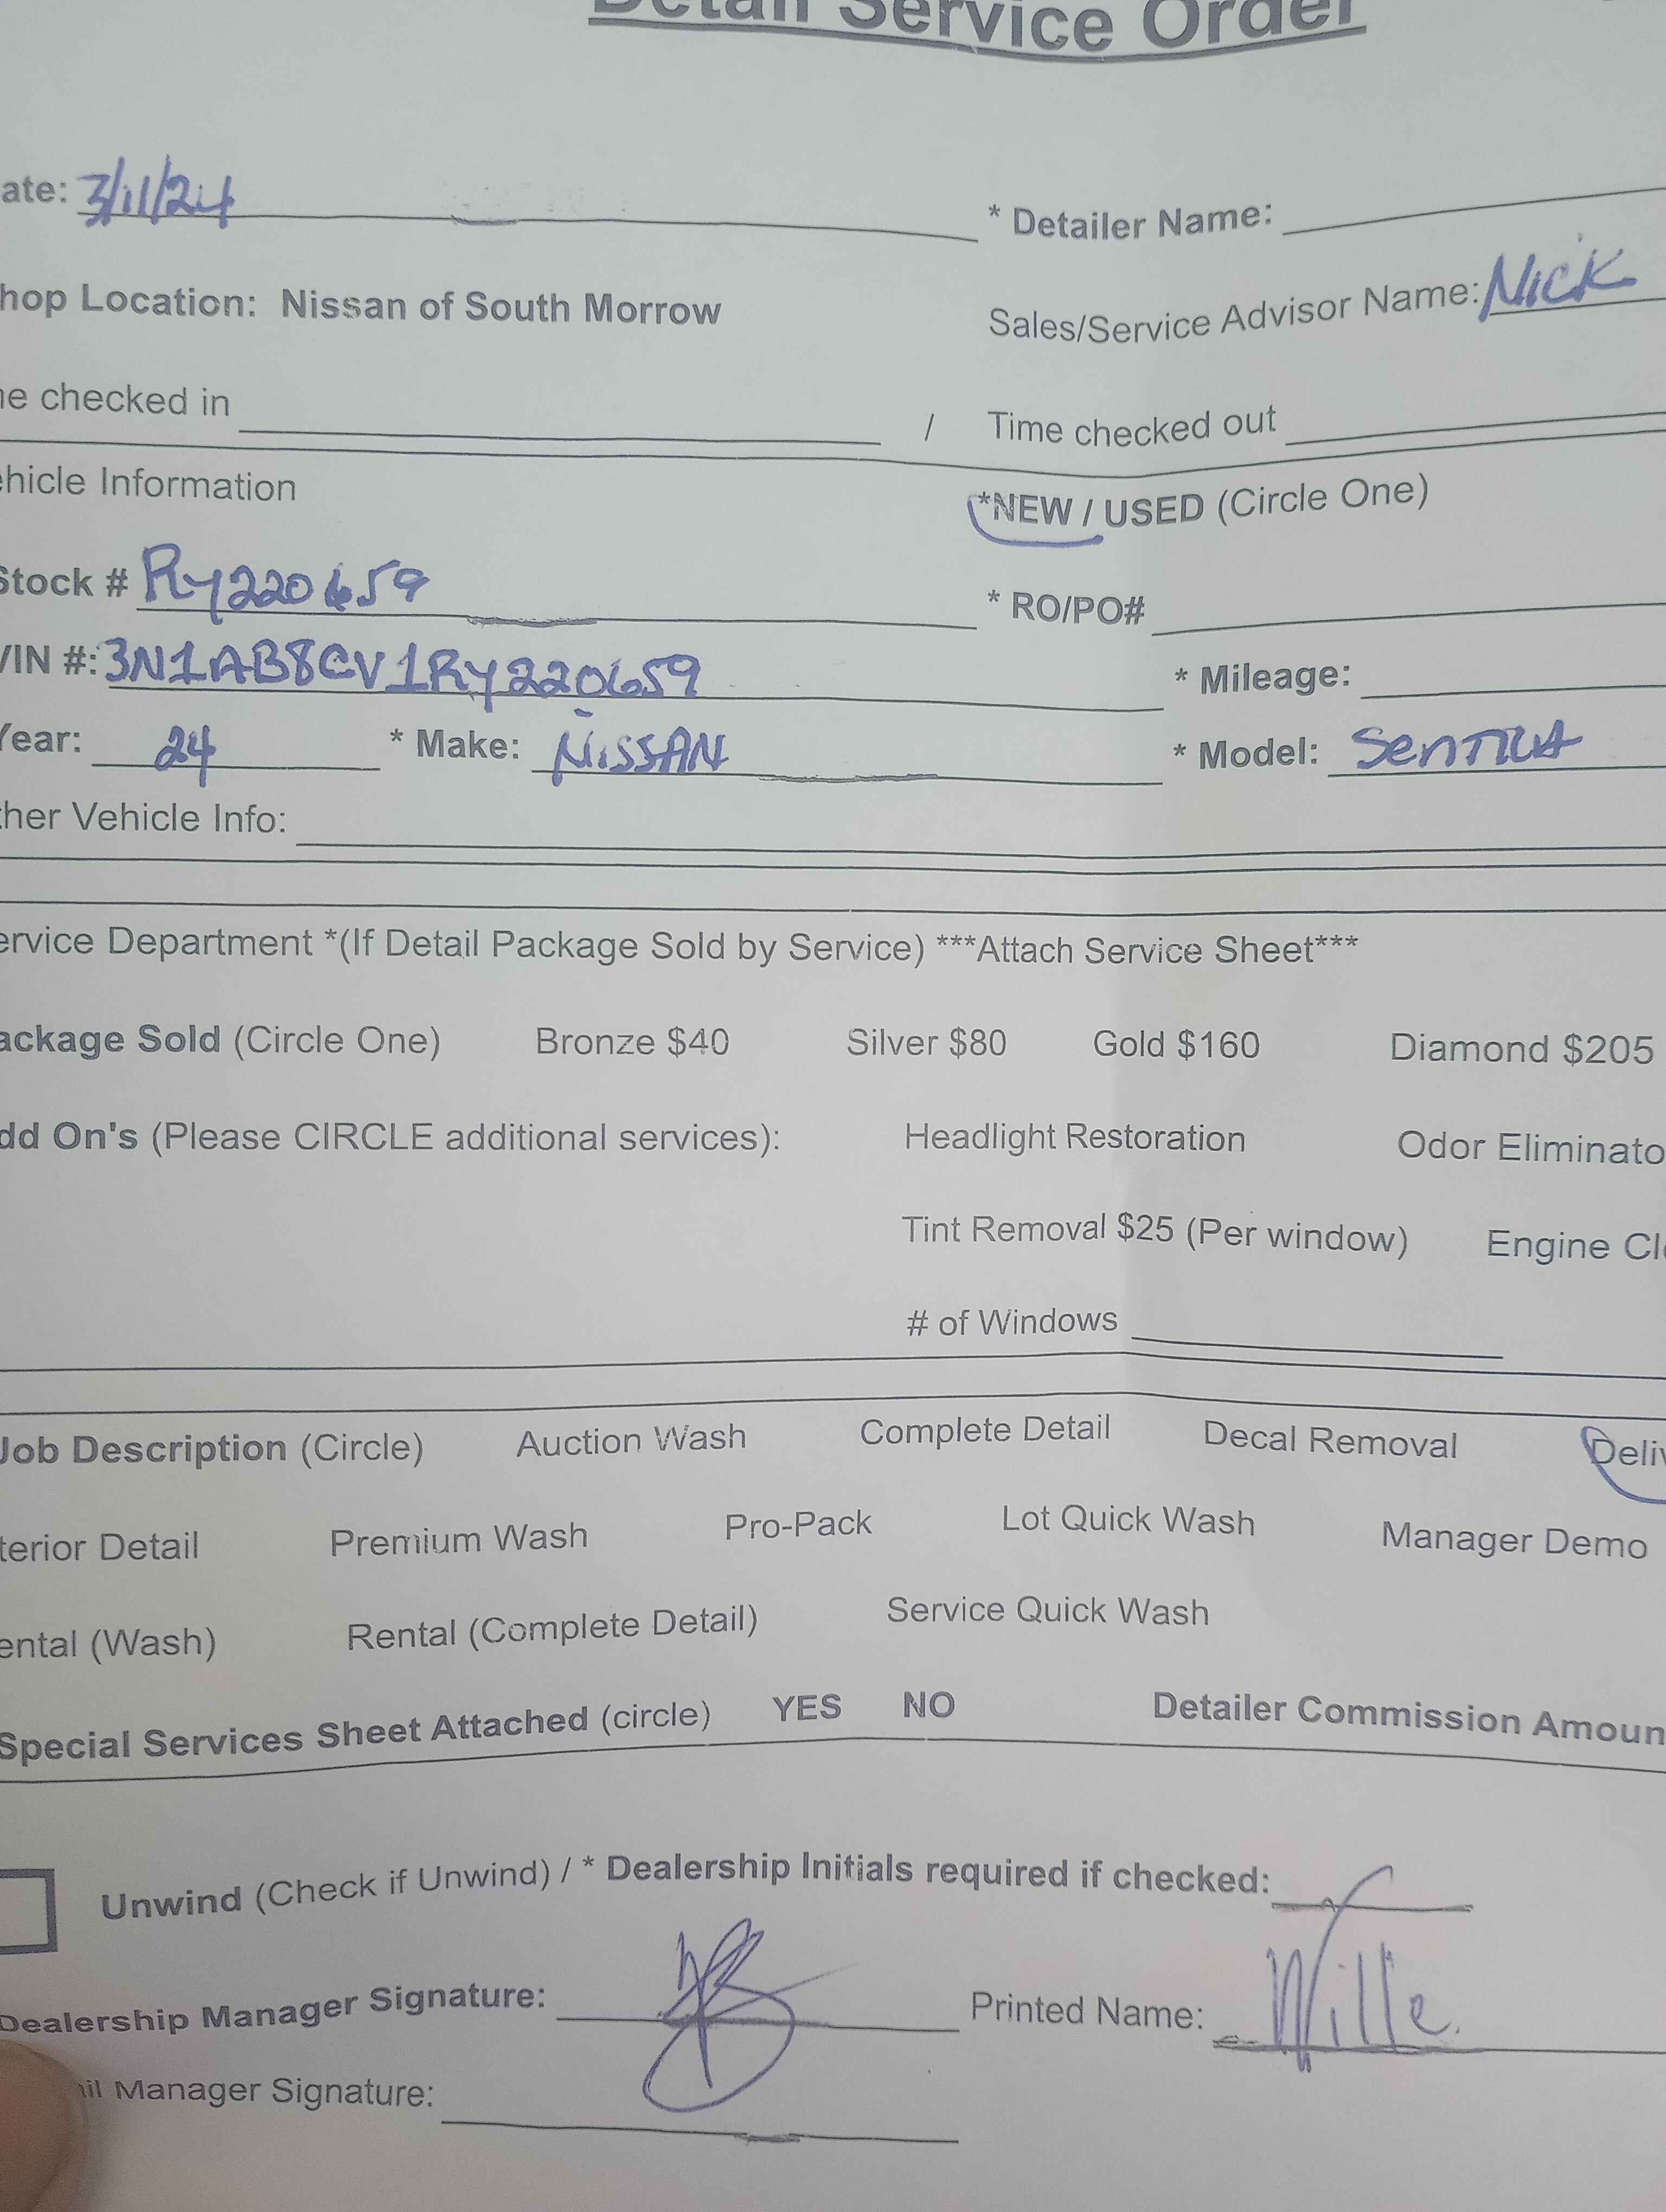 Detail Service Order
ate: 3/11/24 * Detailer Name:
hop Location: Nissan of South Morrow Sales/Service Advisor Name: Nick
ne checked in / Time checked out
ehicle Information *NEW / USED (Circle One)
Stock # RY220659 * RO/PO#
VIN #: 3N1AB8CV1RY220659 * Mileage:
Year: 24 * Make: NISSAN * Model: SENTRA
ther Vehicle Info:
ervice Department *(If Detail Package Sold by Service) ***Attach Service Sheet***
ackage Sold (Circle One) Bronze $40 Silver $80 Gold $160 Diamond $205
dd On's (Please CIRCLE additional services): Headlight Restoration Odor Eliminato
Tint Removal $25 (Per window) Engine Cl
# of Windows
Job Description (Circle) Auction Wash Complete Detail Decal Removal Deliv
terior Detail Premium Wash Pro-Pack Lot Quick Wash Manager Demo
ental (Wash) Rental (Complete Detail) Service Quick Wash
Special Services Sheet Attached (circle) YES NO Detailer Commission Amoun
Unwind (Check if Unwind) / * Dealership Initials required if checked:
Dealership Manager Signature: Printed Name: Wille
il Manager Signature: